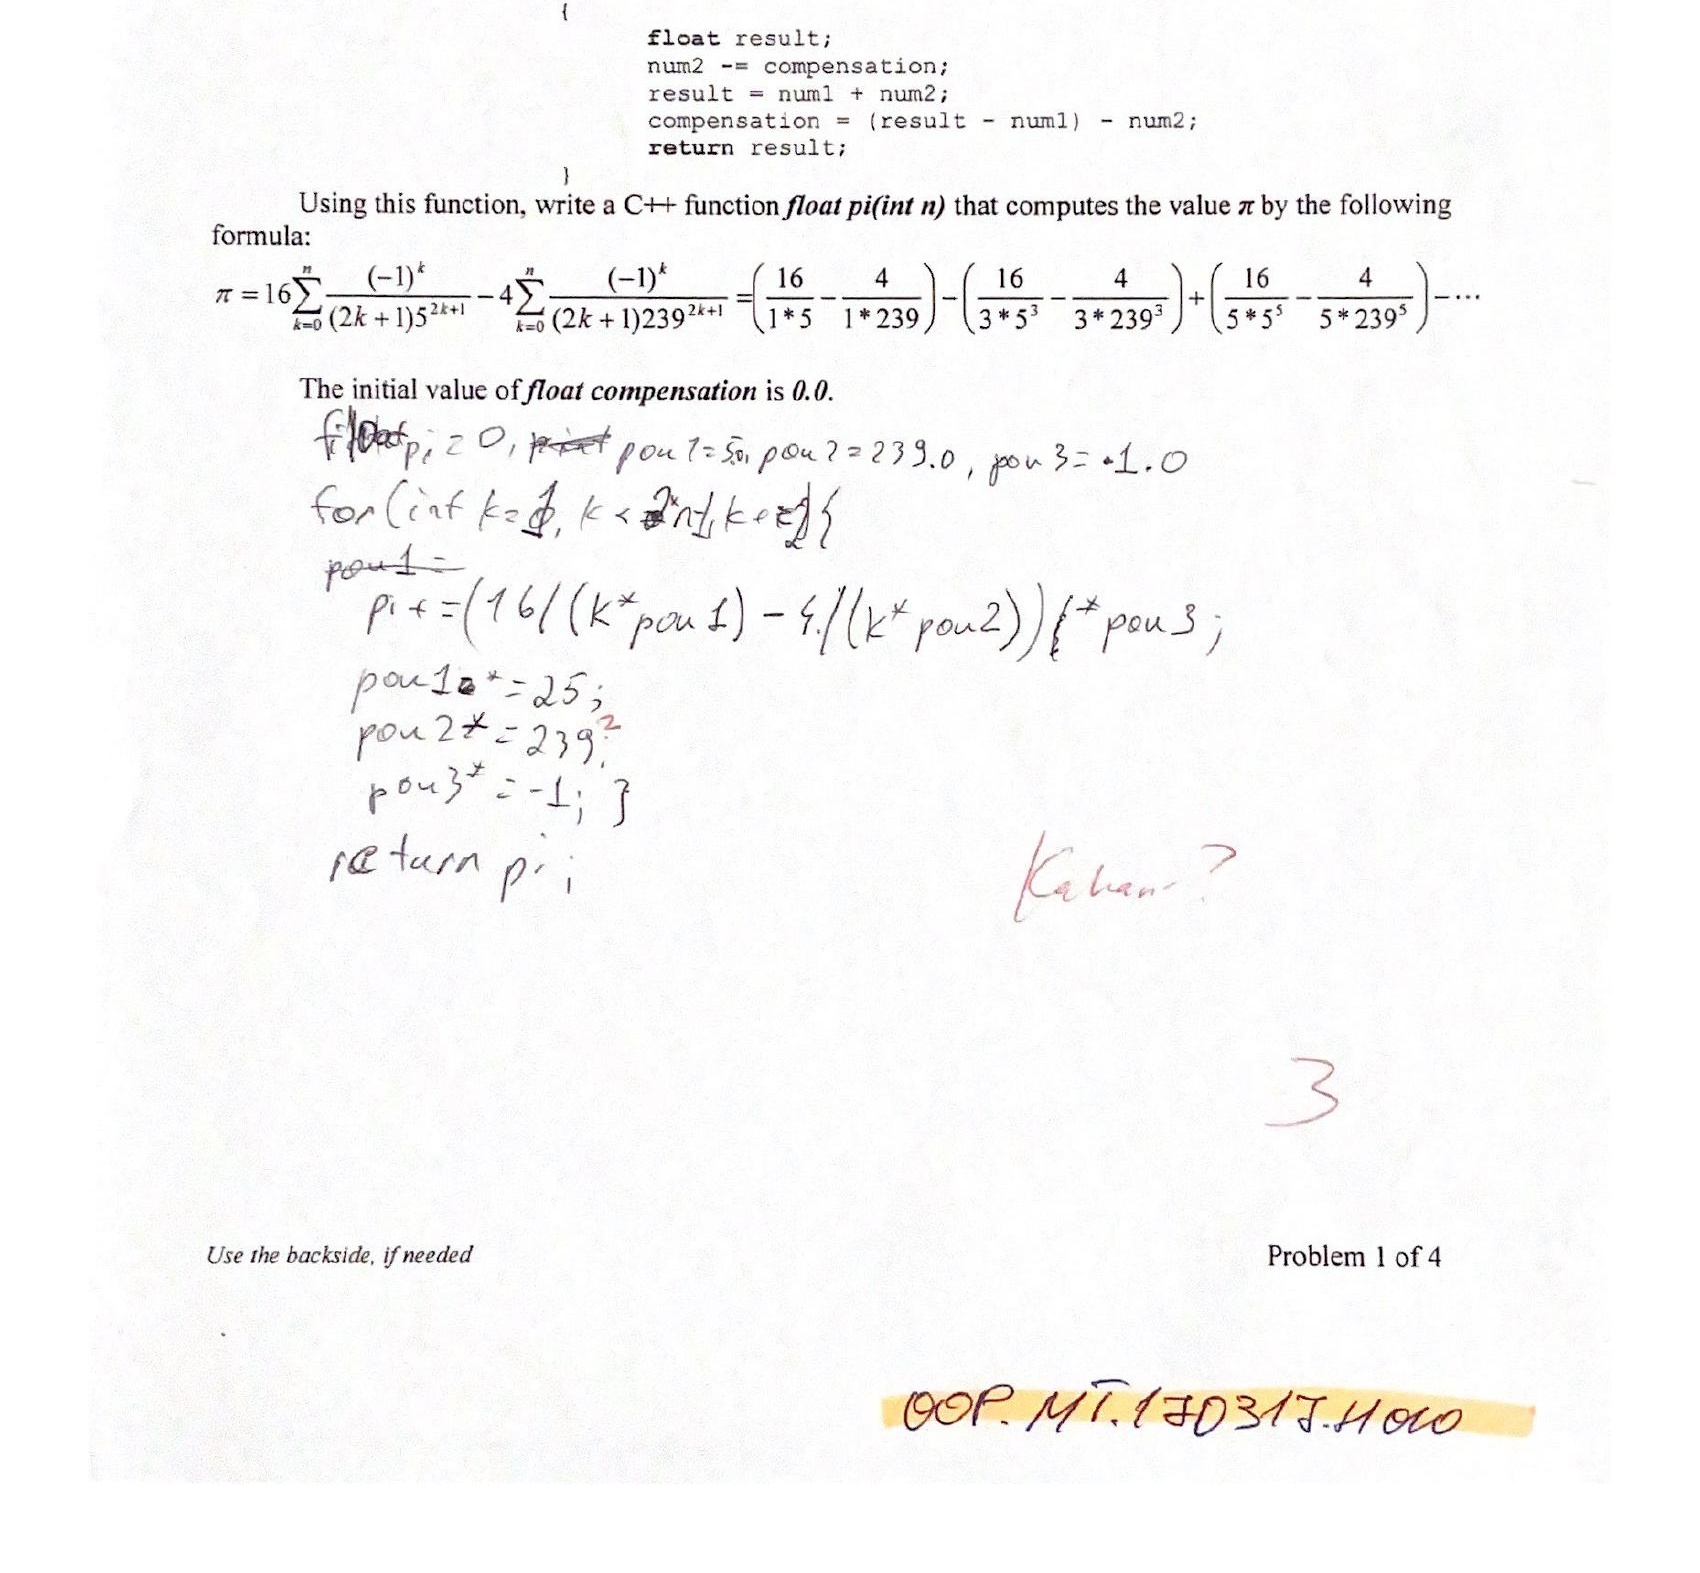 {
float result;
num2 -= compensation;
result = num1 + num2;
compensation = (result - num1) - num2;
return result;
}
Using this function, write a C++ function float pi(int n) that computes the value π by the following
formula:
π = 16 ∑_{k=0}^{n} (-1)^k / ((2k+1)5^{2k+1}) - 4 ∑_{k=0}^{n} (-1)^k / ((2k+1)239^{2k+1}) = (16/(1*5) - 4/(1*239)) - (16/(3*5³) - 4/(3*239³)) + (16/(5*5⁵) - 4/(5*239⁵)) - ···
The initial value of float compensation is 0.0.
float pi = 0, pow1=5.0, pow2=239.0, pow3= 1.0
for (int k=1, k < 2*n+1, k+=2){
pi+=(16/(k*pow1) - 4./(k*pow2))*pow3;
pow1*=25;
pow2*=239²;
pow3*=-1; }
return pi;
Kahan-?
3
Use the backside, if needed
Problem 1 of 4
OOP. MT.170317.